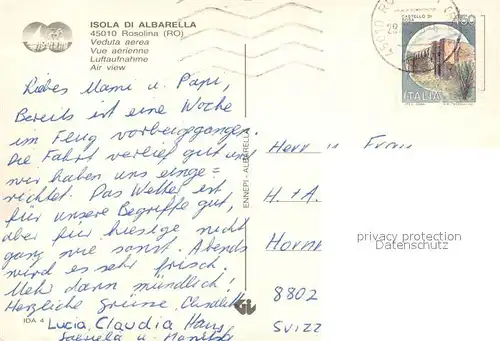 ISOLA DI ALBARELLA
45010 Rosolina (RO)
Veduta aerea
Vue aérienne
Luftaufnahme
Air view
CASTELLO DI
450
ITALIA
Liebes Mami u. Papi,
Bereits ist eine Woche
im Flug vorbeigegangen.
Die Fahrt verlief gut und
wir haben uns einge=
richtet. Das Wetter ist
für unsere Begriffe gut,
aber für hiesige nicht
ganz wie sonst. Abends
wird es sehr frisch.
Mehr dann mündlich!
Herzliche Grüsse,
Lucia, Claudia Hans
u.
IDA 4
ENNEPI - ALBARELLA
Herr
H. + A.
8802
SVIZZ
privacy protection
Datenschutz